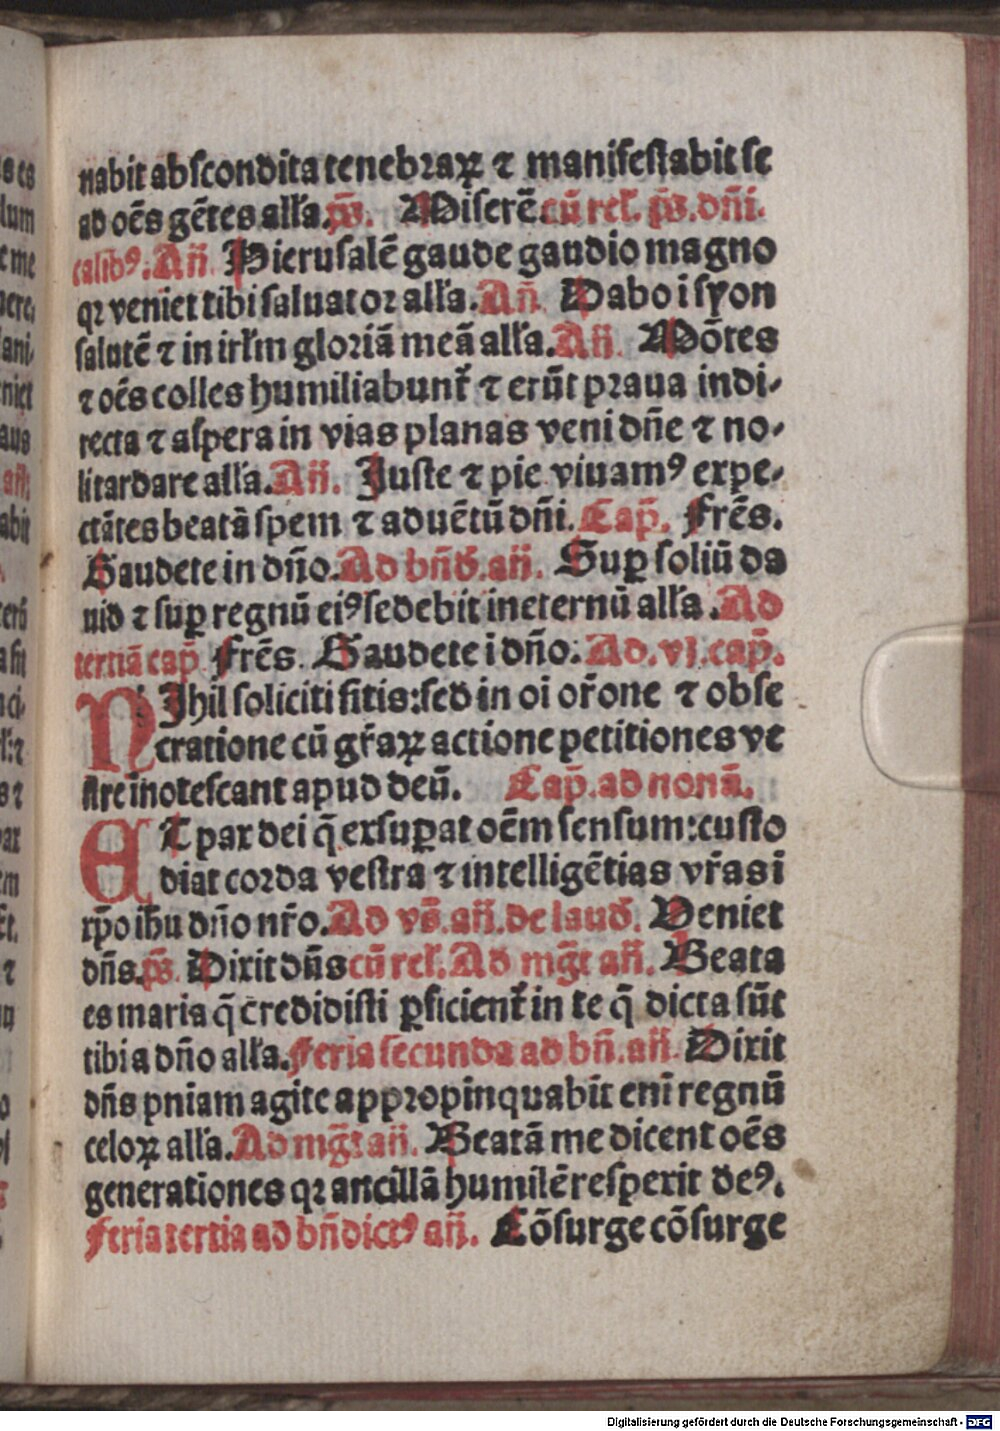 nabit abscondita tenebraꝝ ⁊ manifestabit se
ad oēs gētes alľa. p̄s. Miserē. cū rel̄. p̄s. dn̄i-
calibꝰ. Añ. Hierusalē gaude gaudio magno
qꝛ veniet tibi saluator alľa. Añ. Dabo i syon
salutē ⁊ in irľm gloriā meā alľa. Añ. Mōtes
⁊ oēs colles humiliabunt̄ ⁊ erūt praua indi-
recta ⁊ aspera in vias planas veni dn̄e ⁊ no-
li tardare alľa. Añ. Juste ⁊ pie viuamꝰ expe-
ctātes beatā spem ⁊ aduētū dn̄i. Cap̄. Frēs.
Gaudete in dn̄o. Ad bn̄d. añ. Suꝑ soliū da
uid ⁊ suꝑ regnū eiꝰ sedebit in eternū alľa. Ad
tertiā cap̄. Frēs. Gaudete i dn̄o. Ad .vj. cap̄.
NIhil soliciti sitis: sed in oi or̄one ⁊ obse
cratione cū gr̄aꝝ actione petitiones ve
stre īnotescant apud deū. Cap̄. ad nonā.
ET pax dei q̄ exsuꝑat oēm sensum: custo
diat corda vestra ⁊ intelligētias vr̄as ī
xp̄o ih̄u dn̄o nr̄o. Ad vs̄. añ. de laud. Veniet
dn̄s. p̄s. Dixit dn̄s cū rel̄. Ad mḡt añ. Beata
es maria q̄ credidisti ꝑficient̄ in te q̄ dicta sūt
tibi a dn̄o alľa. Feria secunda ad bn̄. añ. Dixit
dn̄s pniam agite appropinquabit enī regnū
celoꝝ alľa. Ad mḡt añ. Beatā me dicent oēs
generationes qꝛ ancillā humilē respexit deꝰ.
Feria tertia ad bn̄dictꝰ añ. Cōsurge cōsurge
Digitalisierung gefördert durch die Deutsche Forschungsgemeinschaft - DFG